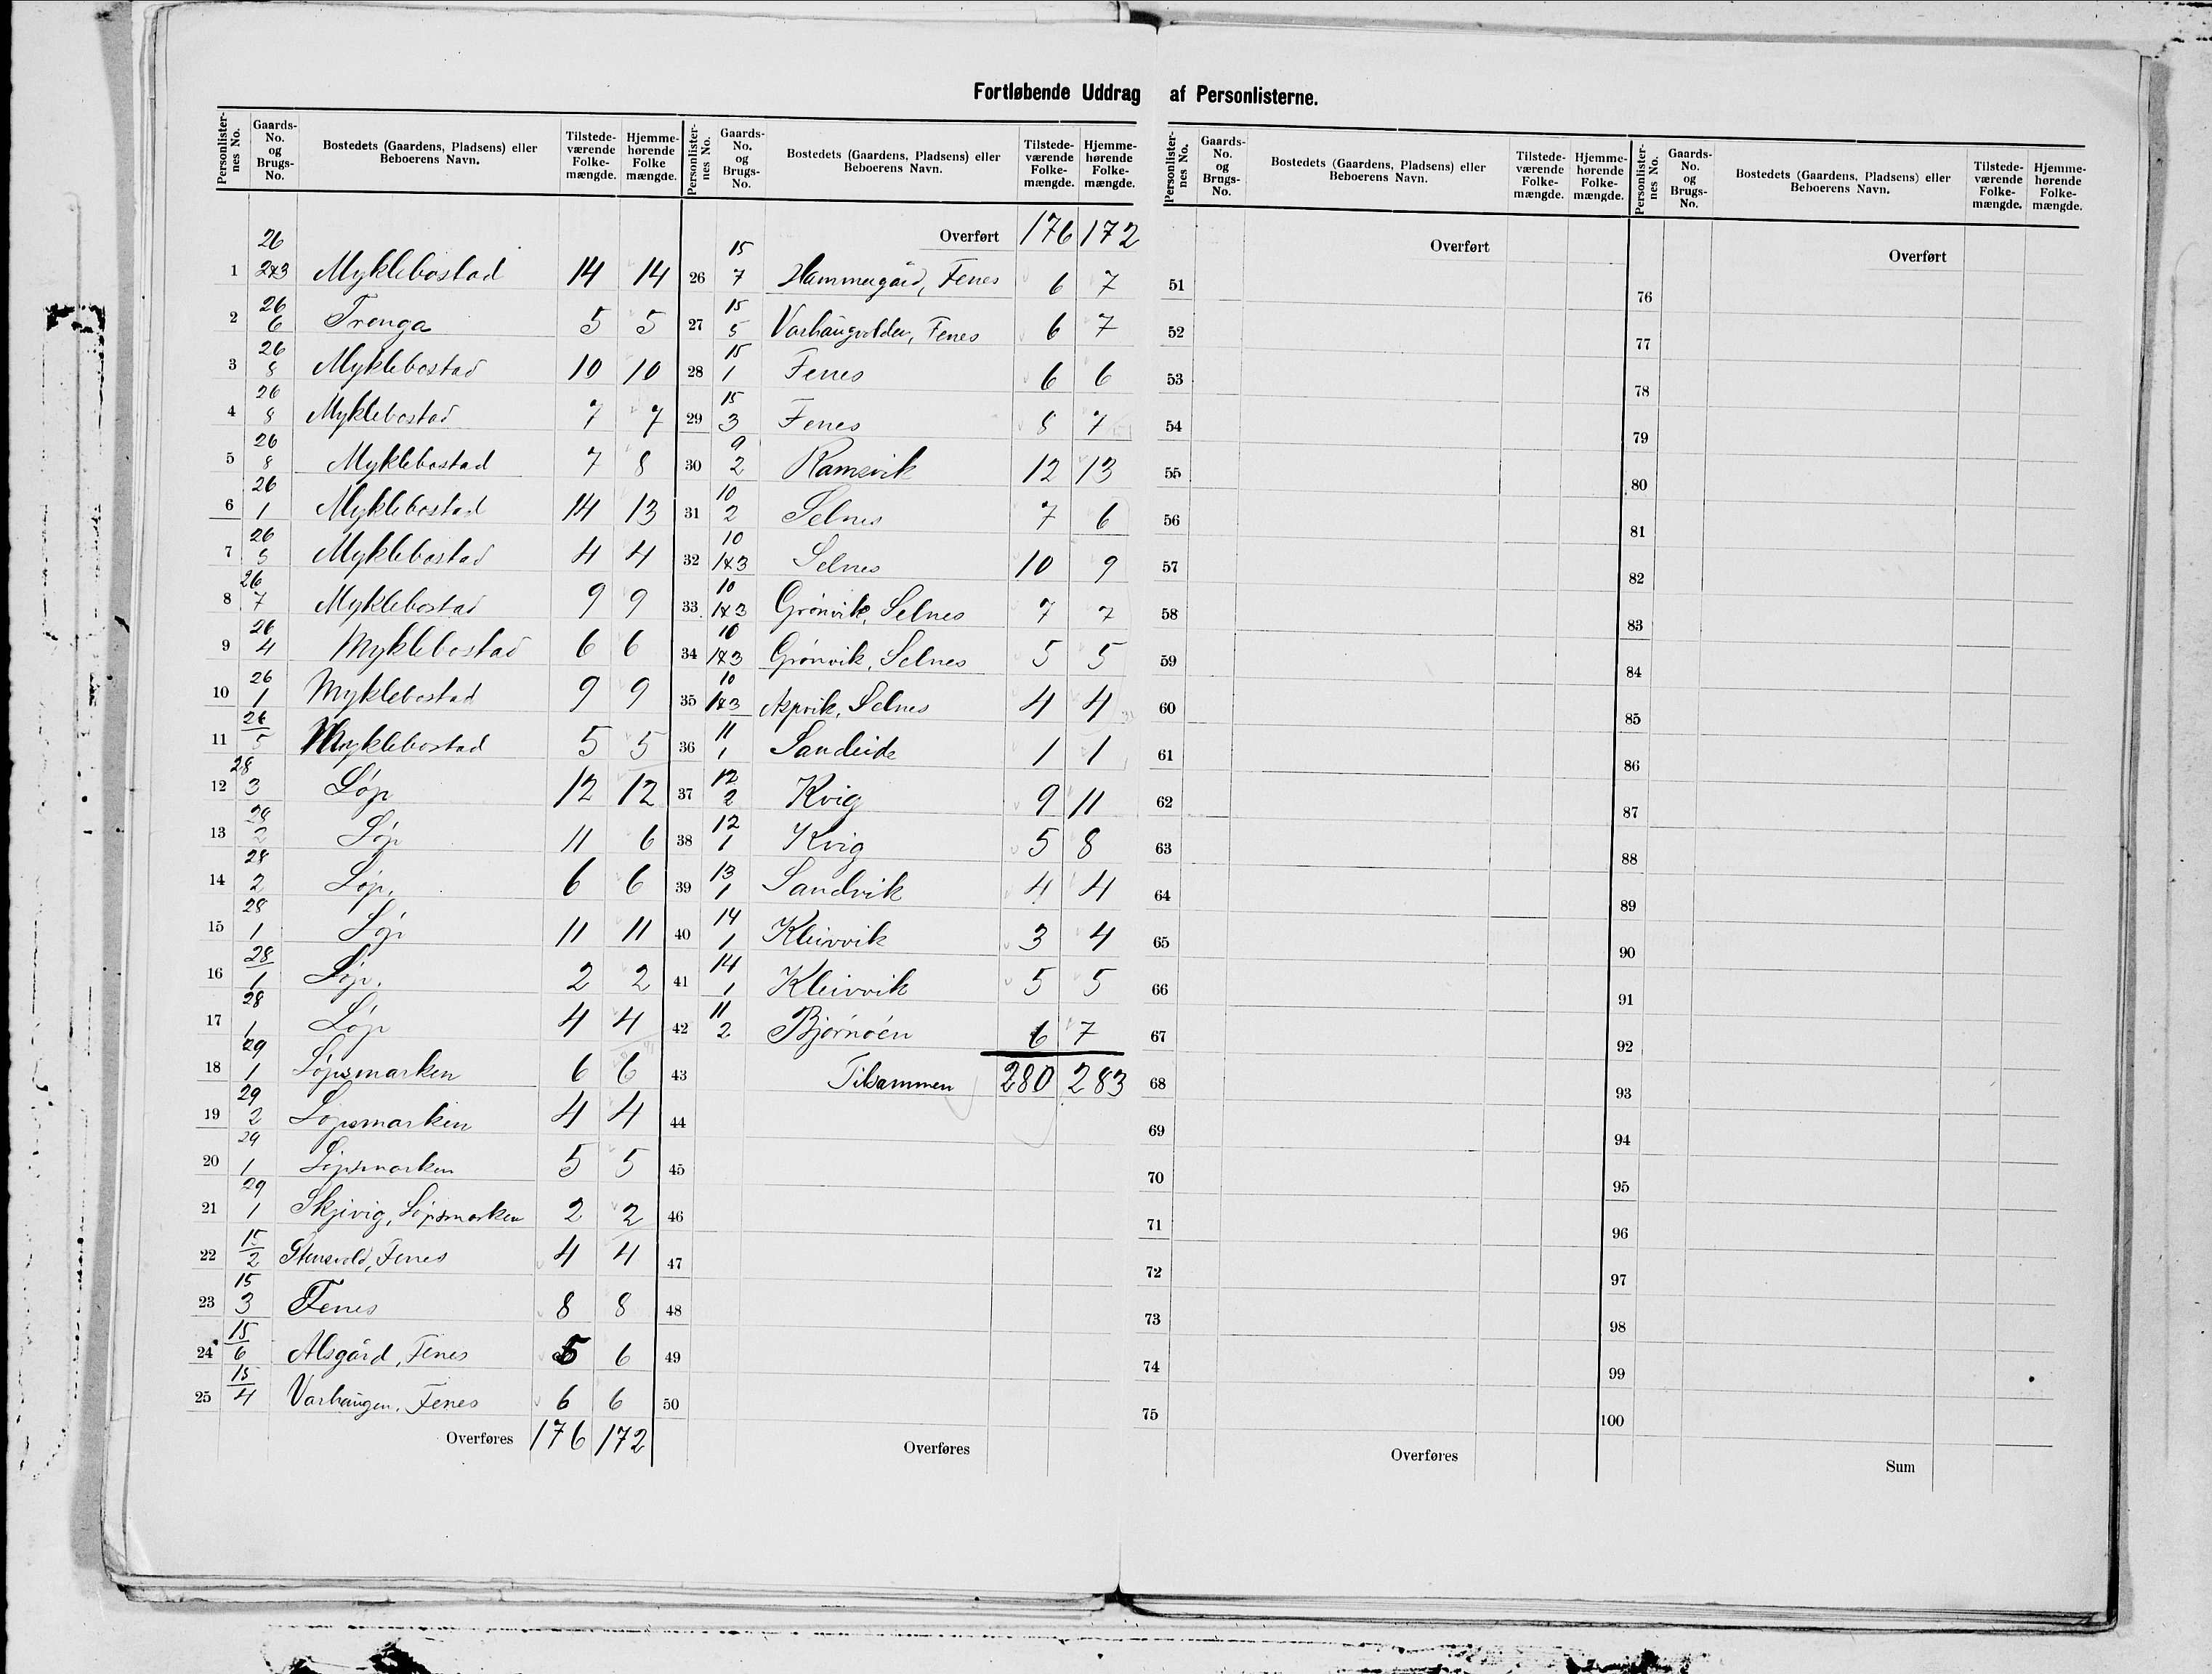 Fortløbende Uddrag af Personlisterne.
Personlister-nes No. | Gaards-No. og Brugs-No. | Bostedets (Gaardens, Pladsens) eller Beboerens Navn. | Tilstede-værende Folke-mængde. | Hjemme-hørende Folke mængde.
1 | 26 2&3 | Myklebostad | 14 | 14
2 | 26 6 | Trenga | 5 | 5
3 | 26 8 | Myklebostad | 10 | 10
4 | 26 8 | Myklebostad | 7 | 7
5 | 26 8 | Myklebostad | 7 | 8
6 | 26 1 | Myklebostad | 14 | 13
7 | 26 5 | Myklebostad | 4 | 4
8 | 26 7 | Myklebostad | 9 | 9
9 | 26 4 | Myklebostad | 6 | 6
10 | 26 1 | Myklebostad | 9 | 9
11 | 26 5 | Myklebostad | 5 | 5
12 | 28 3 | Løp | 12 | 12
13 | 28 2 | Løp | 11 | 6
14 | 28 2 | Løp. | 6 | 6
15 | 28 1 | Løp | 11 | 11
16 | 28 1 | Løp. | 2 | 2
17 | 28 1 | Løp | 4 | 4
18 | 29 1 | Løpsmarken | 6 | 6
19 | 29 2 | Løpsmarken | 4 | 4
20 | 29 1 | Løpsmarken | 5 | 5
21 | 29 1 | Skjevig, Løpsmarken | 2 | 2
22 | 15 2 | Stensvold, Fenes | 4 | 4
23 | 15 3 | Fenes | 8 | 8
24 | 15 6 | Alsgård, Fenes | 5 | 6
25 | 15 4 | Varhaugen, Fenes | 6 | 6
Overføres | 176 | 172
Personlister-nes No. | Gaards-No. og Brugs-No. | Bostedets (Gaardens, Pladsens) eller Beboerens Navn. | Tilstede-værende Folke-mængde. | Hjemme-hørende Folke-mængde.
Overført | 176 | 172
26 | 15 7 | Hammergård, Fenes | 6 | 7
27 | 15 5 | Varhaugvolden, Fenes | 6 | 7
28 | 15 1 | Fenes | 6 | 6
29 | 15 3 | Fenes | 8 | 7
30 | 9 2 | Ramsvik | 12 | 13
31 | 10 2 | Selnes | 7 | 6
32 | 10 1&3 | Selnes | 10 | 9
33 | 10 1&3 | Grønvik, Selnes | 7 | 7
34 | 10 1&3 | Grønvik, Selnes | 5 | 5
35 | 10 1&3 | Aspvik, Selnes | 4 | 4
36 | 11 1 | Sandeide | 1 | 1
37 | 12 2 | Kvig | 9 | 11
38 | 12 1 | Kvig | 5 | 8
39 | 13 1 | Sandvik | 4 | 4
40 | 14 1 | Kleivvik | 3 | 4
41 | 14 1 | Kleivvik | 5 | 5
42 | 11 2 | Bjørnøen | 6 | 7
43 | Tilsammen | 280 | 283
44
45
46
47
48
49
50
Overføres
Personlister-nes No. | Gaards-No. og Brugs-No. | Bostedets (Gaardens, Pladsens) eller Beboerens Navn. | Tilstede-værende Folke-mængde. | Hjemme-hørende Folke-mængde.
Overført
51
52
53
54
55
56
57
58
59
60
61
62
63
64
65
66
67
68
69
70
71
72
73
74
75
Overføres
Personlister-nes No. | Gaards-No. og Brugs-No. | Bostedets (Gaardens, Pladsens) eller Beboerens Navn. | Tilstede-værende Folke-mængde. | Hjemme-hørende Folke-mængde.
Overført
76
77
78
79
80
81
82
83
84
85
86
87
88
89
90
91
92
93
94
95
96
97
98
99
100
Sum